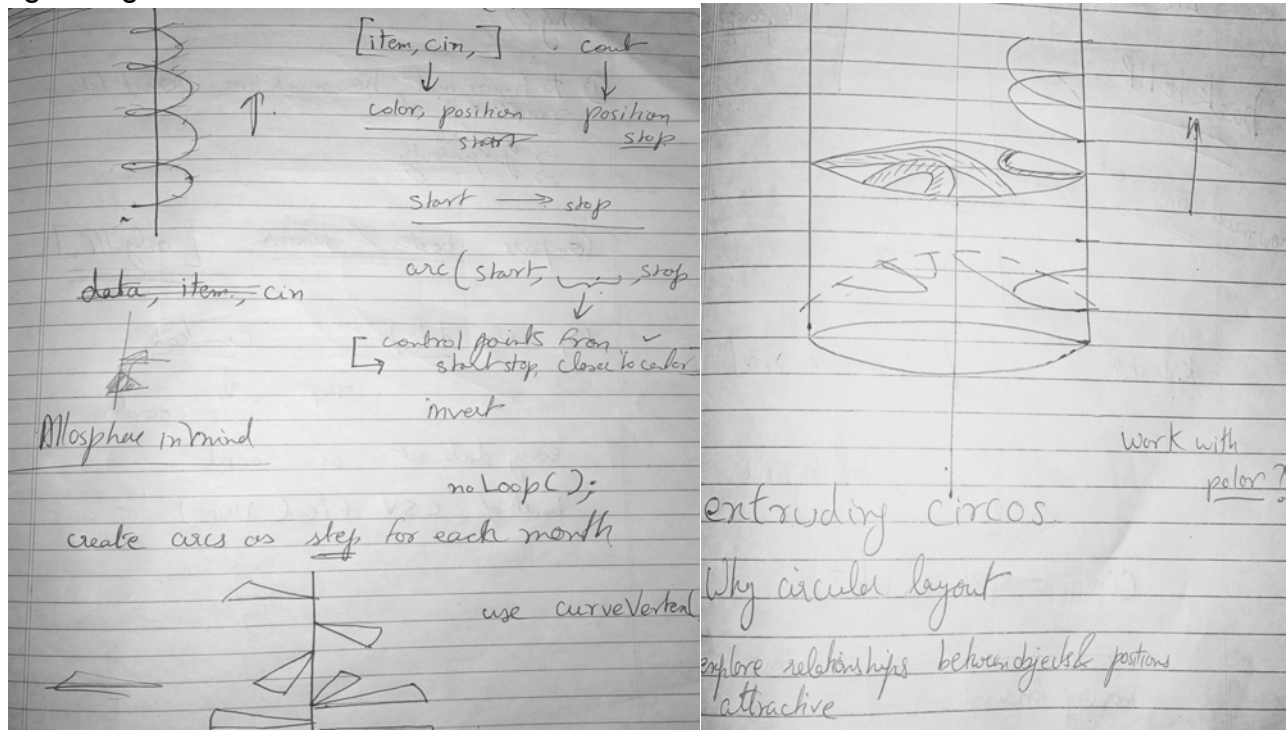 [item, cin, ] . cout
color, position position
start stop
start → stop
arc ( start, , stop
data, item, cin
control points from
start stop, closer to center
invert
Allosphere in mind
noLoop();
create arcs as step for each month
use curveVertex(
work with
polar?
extruding circos.
Why circular layout
explore relationships between objects & positions
attractive